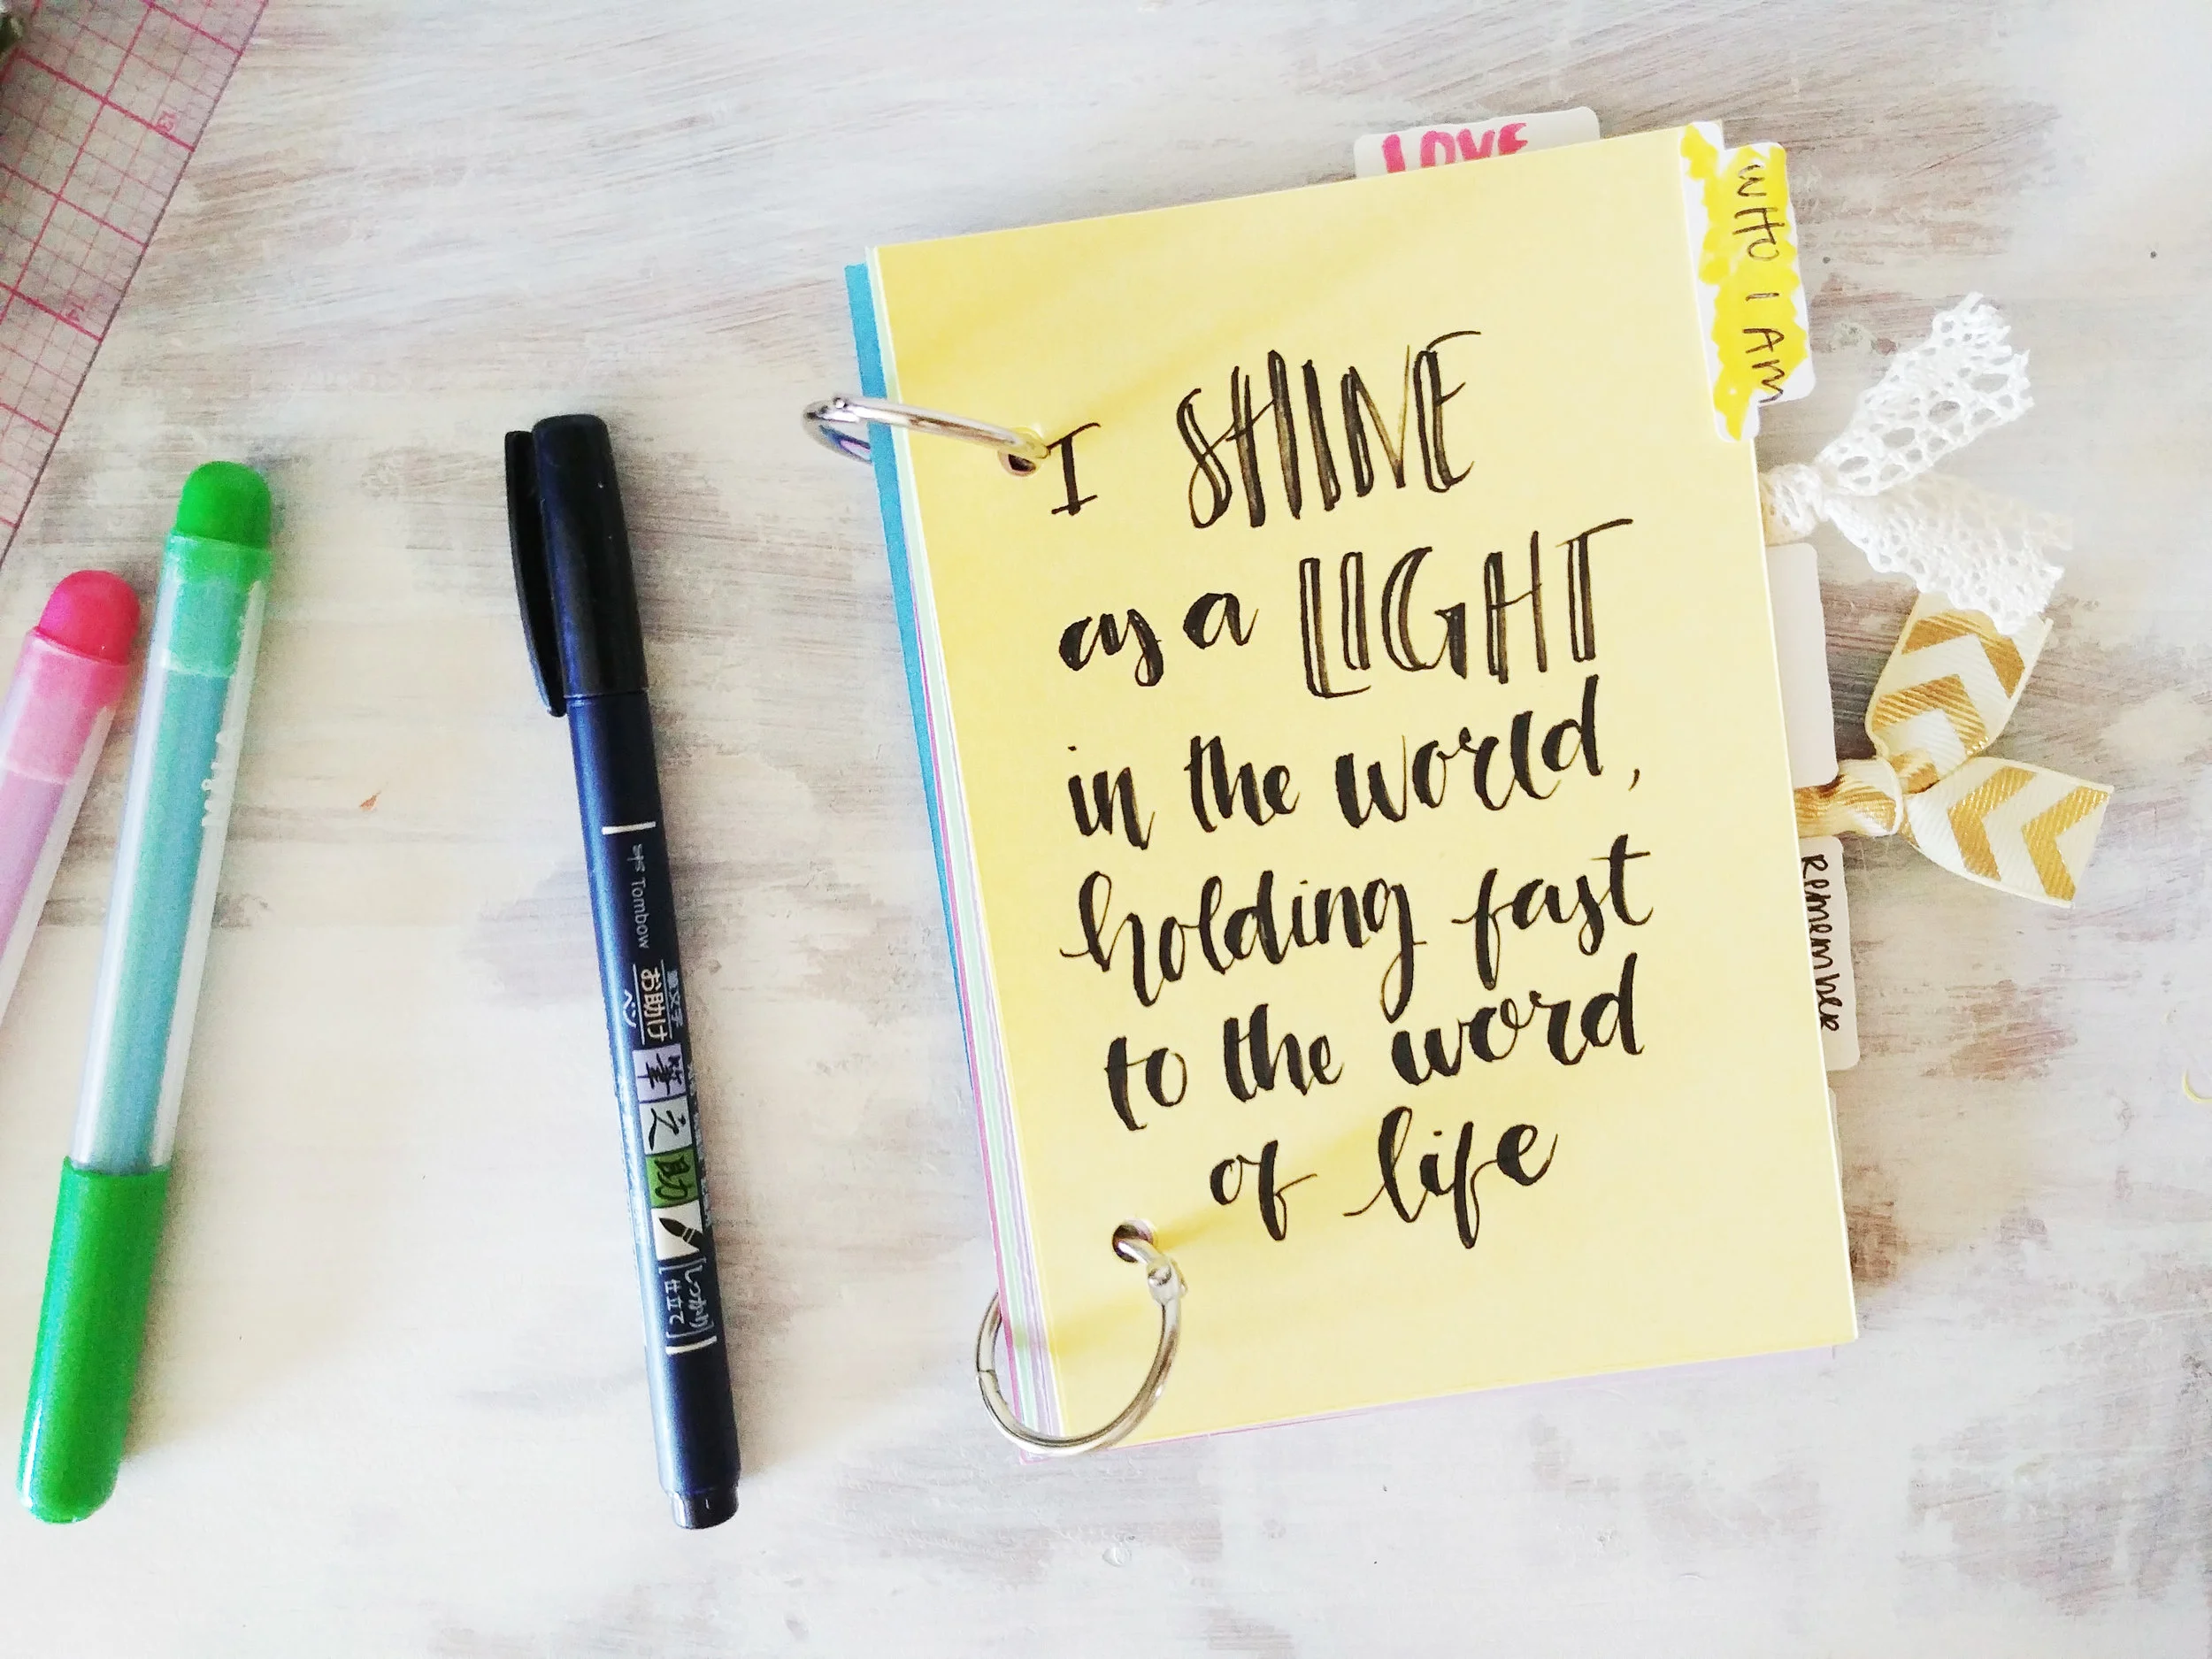 LOVE
WHO I AM
I SHINE
as a LIGHT
in the world,
holding fast
to the word
of life
Remember
Tombow
筆文字
お助け
ペン
筆之助
しっかり
仕立て
13